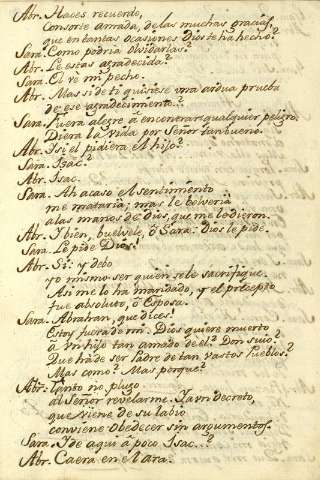 Abr. Haces recuerdo,
Consorte amada, de las muchas gracias,
que en tantas ocasiones Dios te ha hecho?
Sara. Como podria olvidarlas?
Abr. Le estas agradecida?
Sara. El vé mi pecho.
Abr. Mas si de ti quisiese una ardua prueba
de ese agradecimento?
Sara. Fuera alegre á encontrar qualquier peligro.
Diera la vida por Señor tan bueno.
Abr. I si el pidiera el hijo?
Sara. Isac?
Abr. Isac.
Sara. Ah acaso el sentimiento
me mataria; mas le bolveria
a las manos de Dios, que me lo dieron.
Abr. Y bien, buelvele, ò Sara: Dios le pide.
Sara. Le pide Dios!
Abr. Si: y debo
yo mismo ser quien se le sacrifique.
Asi me lo ha mandado, y el precepto
fue absoluto, ó Esposa.
Sara. Abrahan, que dices!
Estoy fuera de mi: Dios quiere muerto
á un hijo tan amado de el? Don suio?
Que ha de ser Padre de tan vastos Pueblos?
Mas como? Mas porque?
Abr. Tanto no plugo
al Señor revelarme. Y a un decreto,
que viene de su labio
conviene obedecer sin argumentos.
Sara. Y de aqui á poco Isac..?
Abr. Caera en el ara.